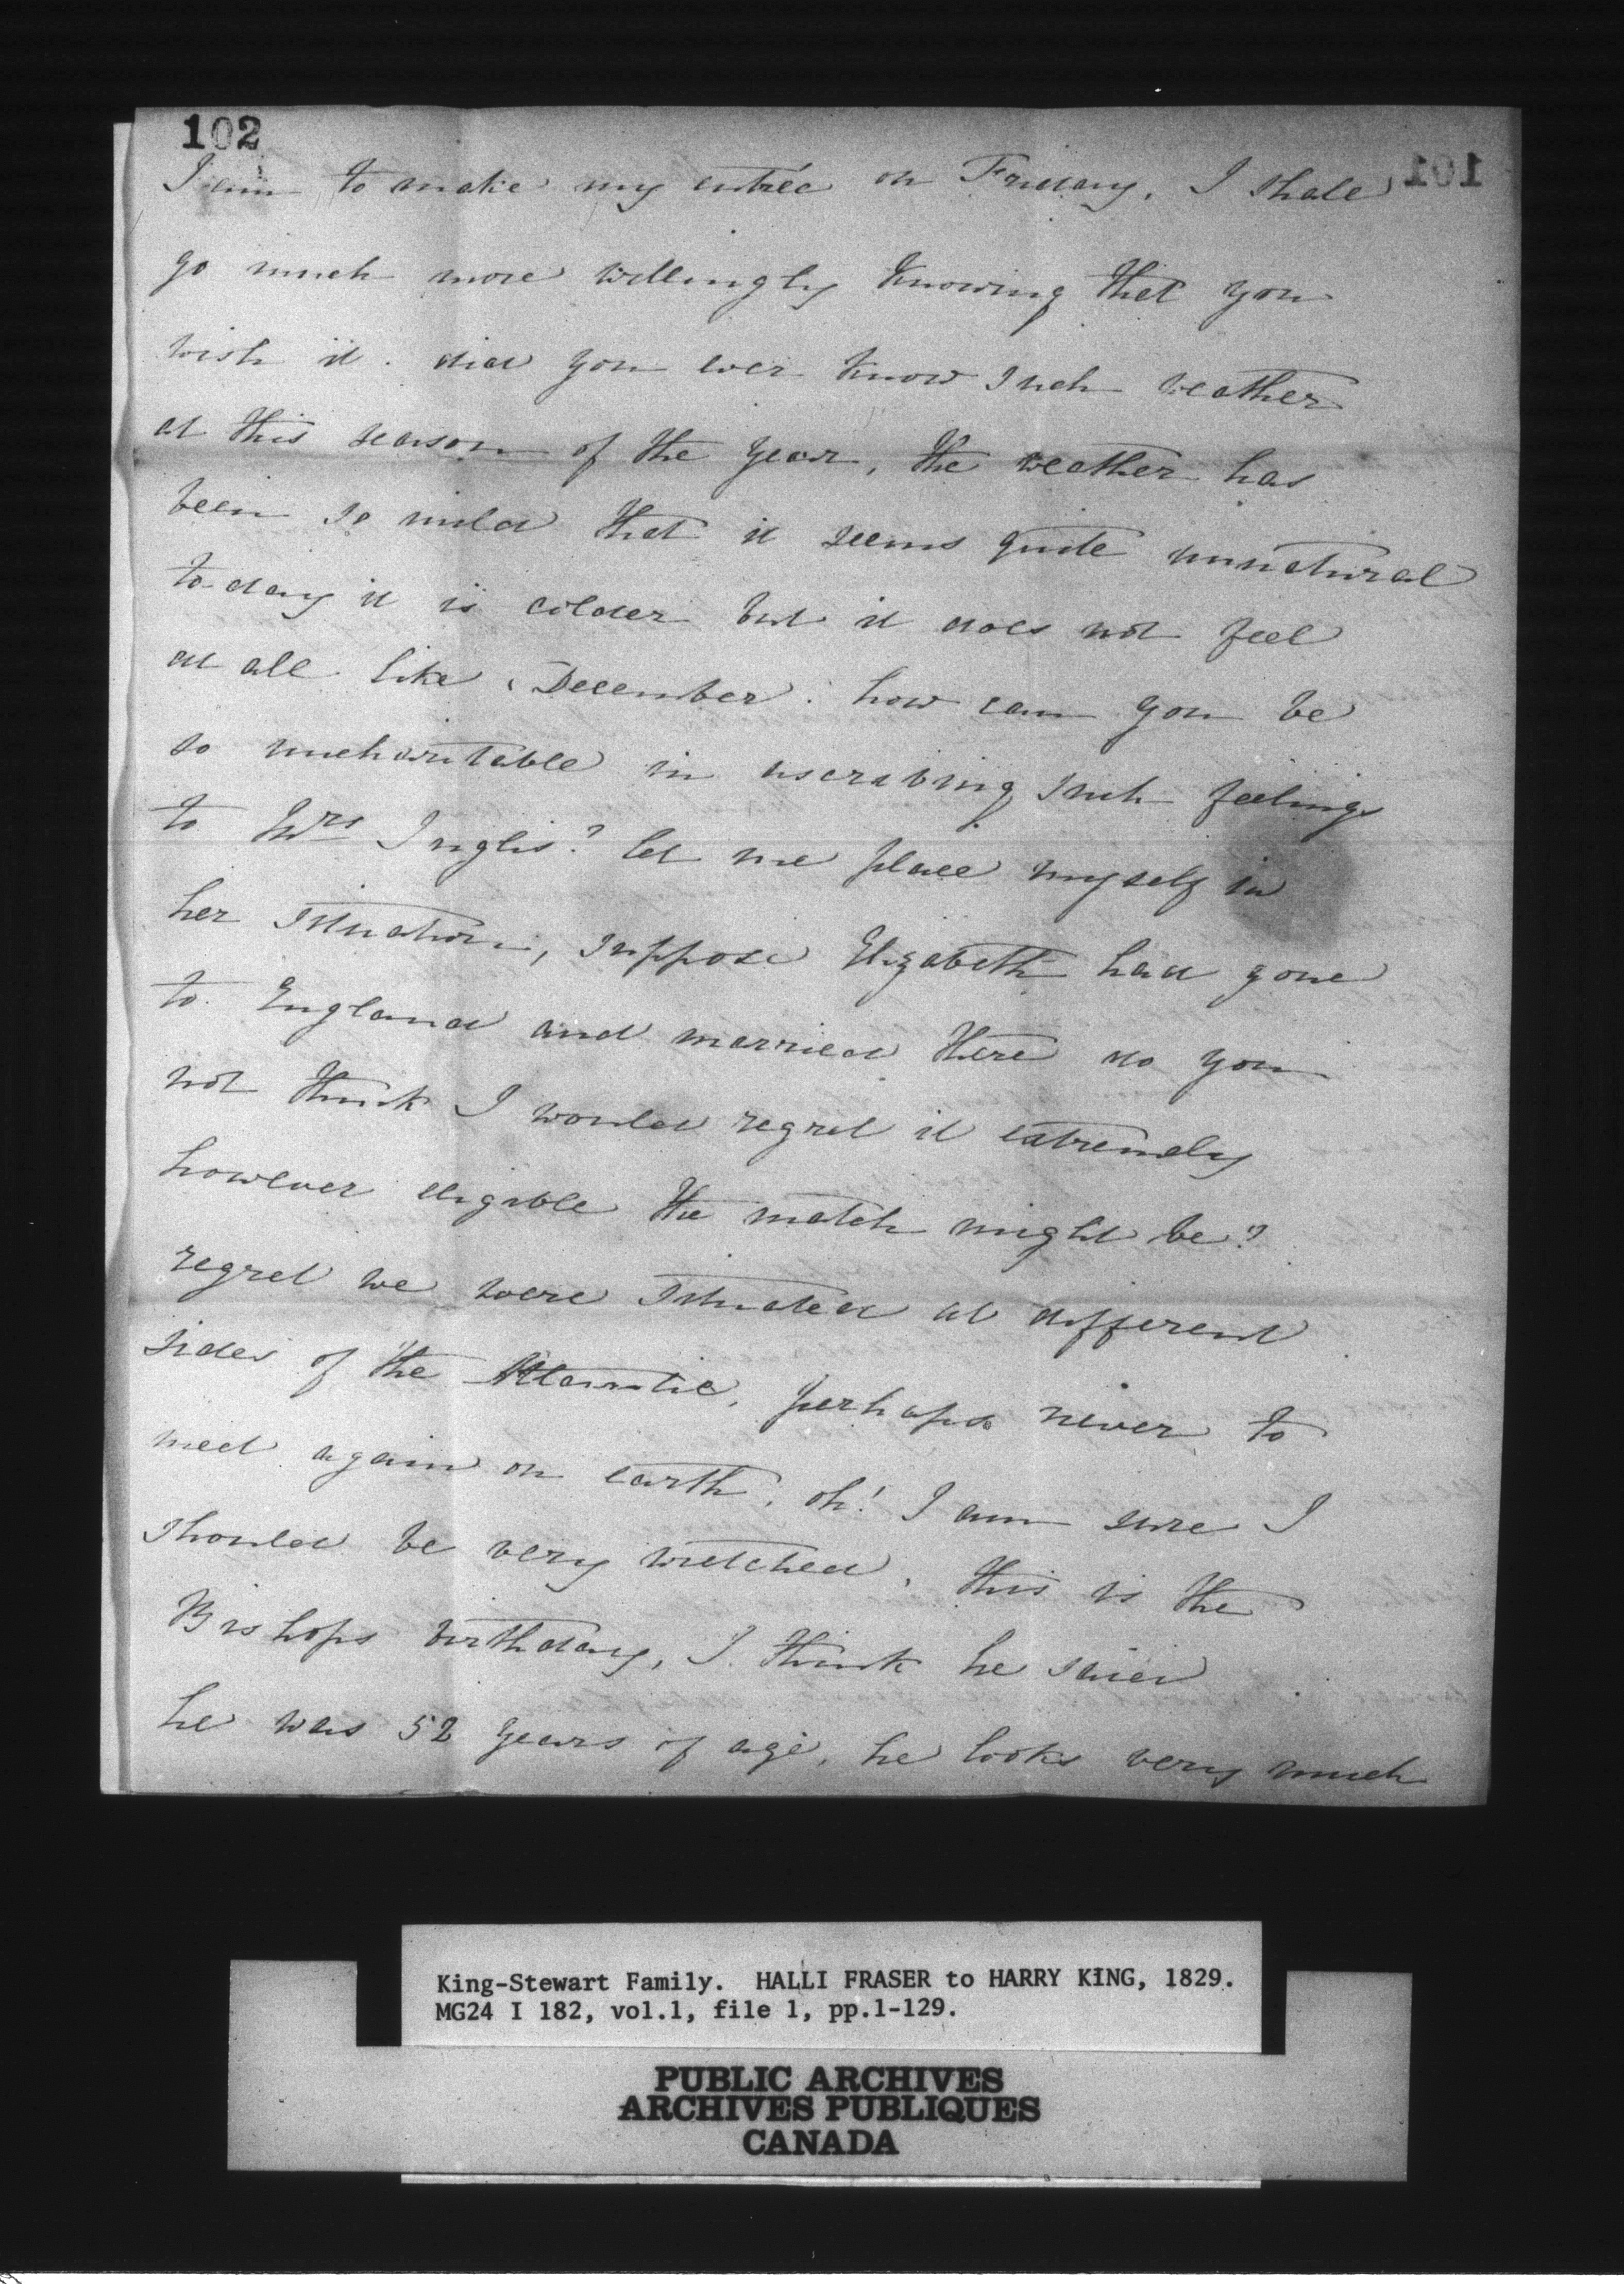 102
101
I am to make my entrée on Friday, I shall
go much more willingly knowing that you
wish it. did you ever know such weather
at this season of the year, the weather has
been so mild that it seems quite unnatural
to-day it is colder but it does not feel
at all like December. how can you be
so uncharitable in ascribing such feelings
to Mrs Inglis? let me place myself in
her situation, suppose Elizabeth had gone
to England and married there do you
not think I would regret it extremely
however eligible the match might be?
regret we were situated at different
sides of the Atlantic, perhaps never to
meet again on earth, oh! I am sure I
should be very wretched, this is the
Bishops birthday, I think he said
he was 52 years of age, he looks very much
King-Stewart Family. HALLI FRASER to HARRY KING, 1829.
MG24 I 182, vol.1, file 1, pp.1-129.
PUBLIC ARCHIVES
ARCHIVES PUBLIQUES
CANADA